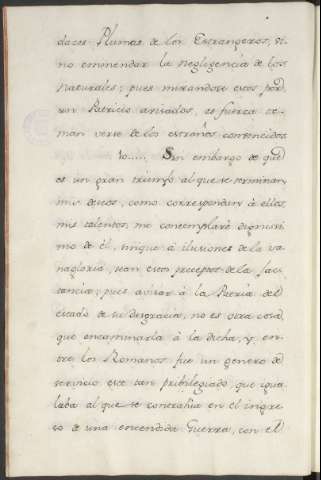 daces Plumas de los Estrangeros, si-
no enmendar la negligencia de los
Naturales; pues mirandose estos por
un Patricio avisados, es fuerza te-
man verse de los estraños convencidos.
10..... Sin embargo de que
es un gran triunfo al que se terminan
mis deseos, como correspondan à ellos
mis talentos, me contemplaré dignisi-
mo de él, sin que à ilusiones de la va-
nagloria, sean estos preceptos de la jac-
tancia; pues avisar à la Patria del
estado de su desgracia, no es otra cosa
que encaminarla à la dicha, y en-
tre los Romanos fue un genero de
servicio este tan pribilegiado, que igua-
laba al que se contrahìa en el ingre-
so de una encendida Guerra, con el